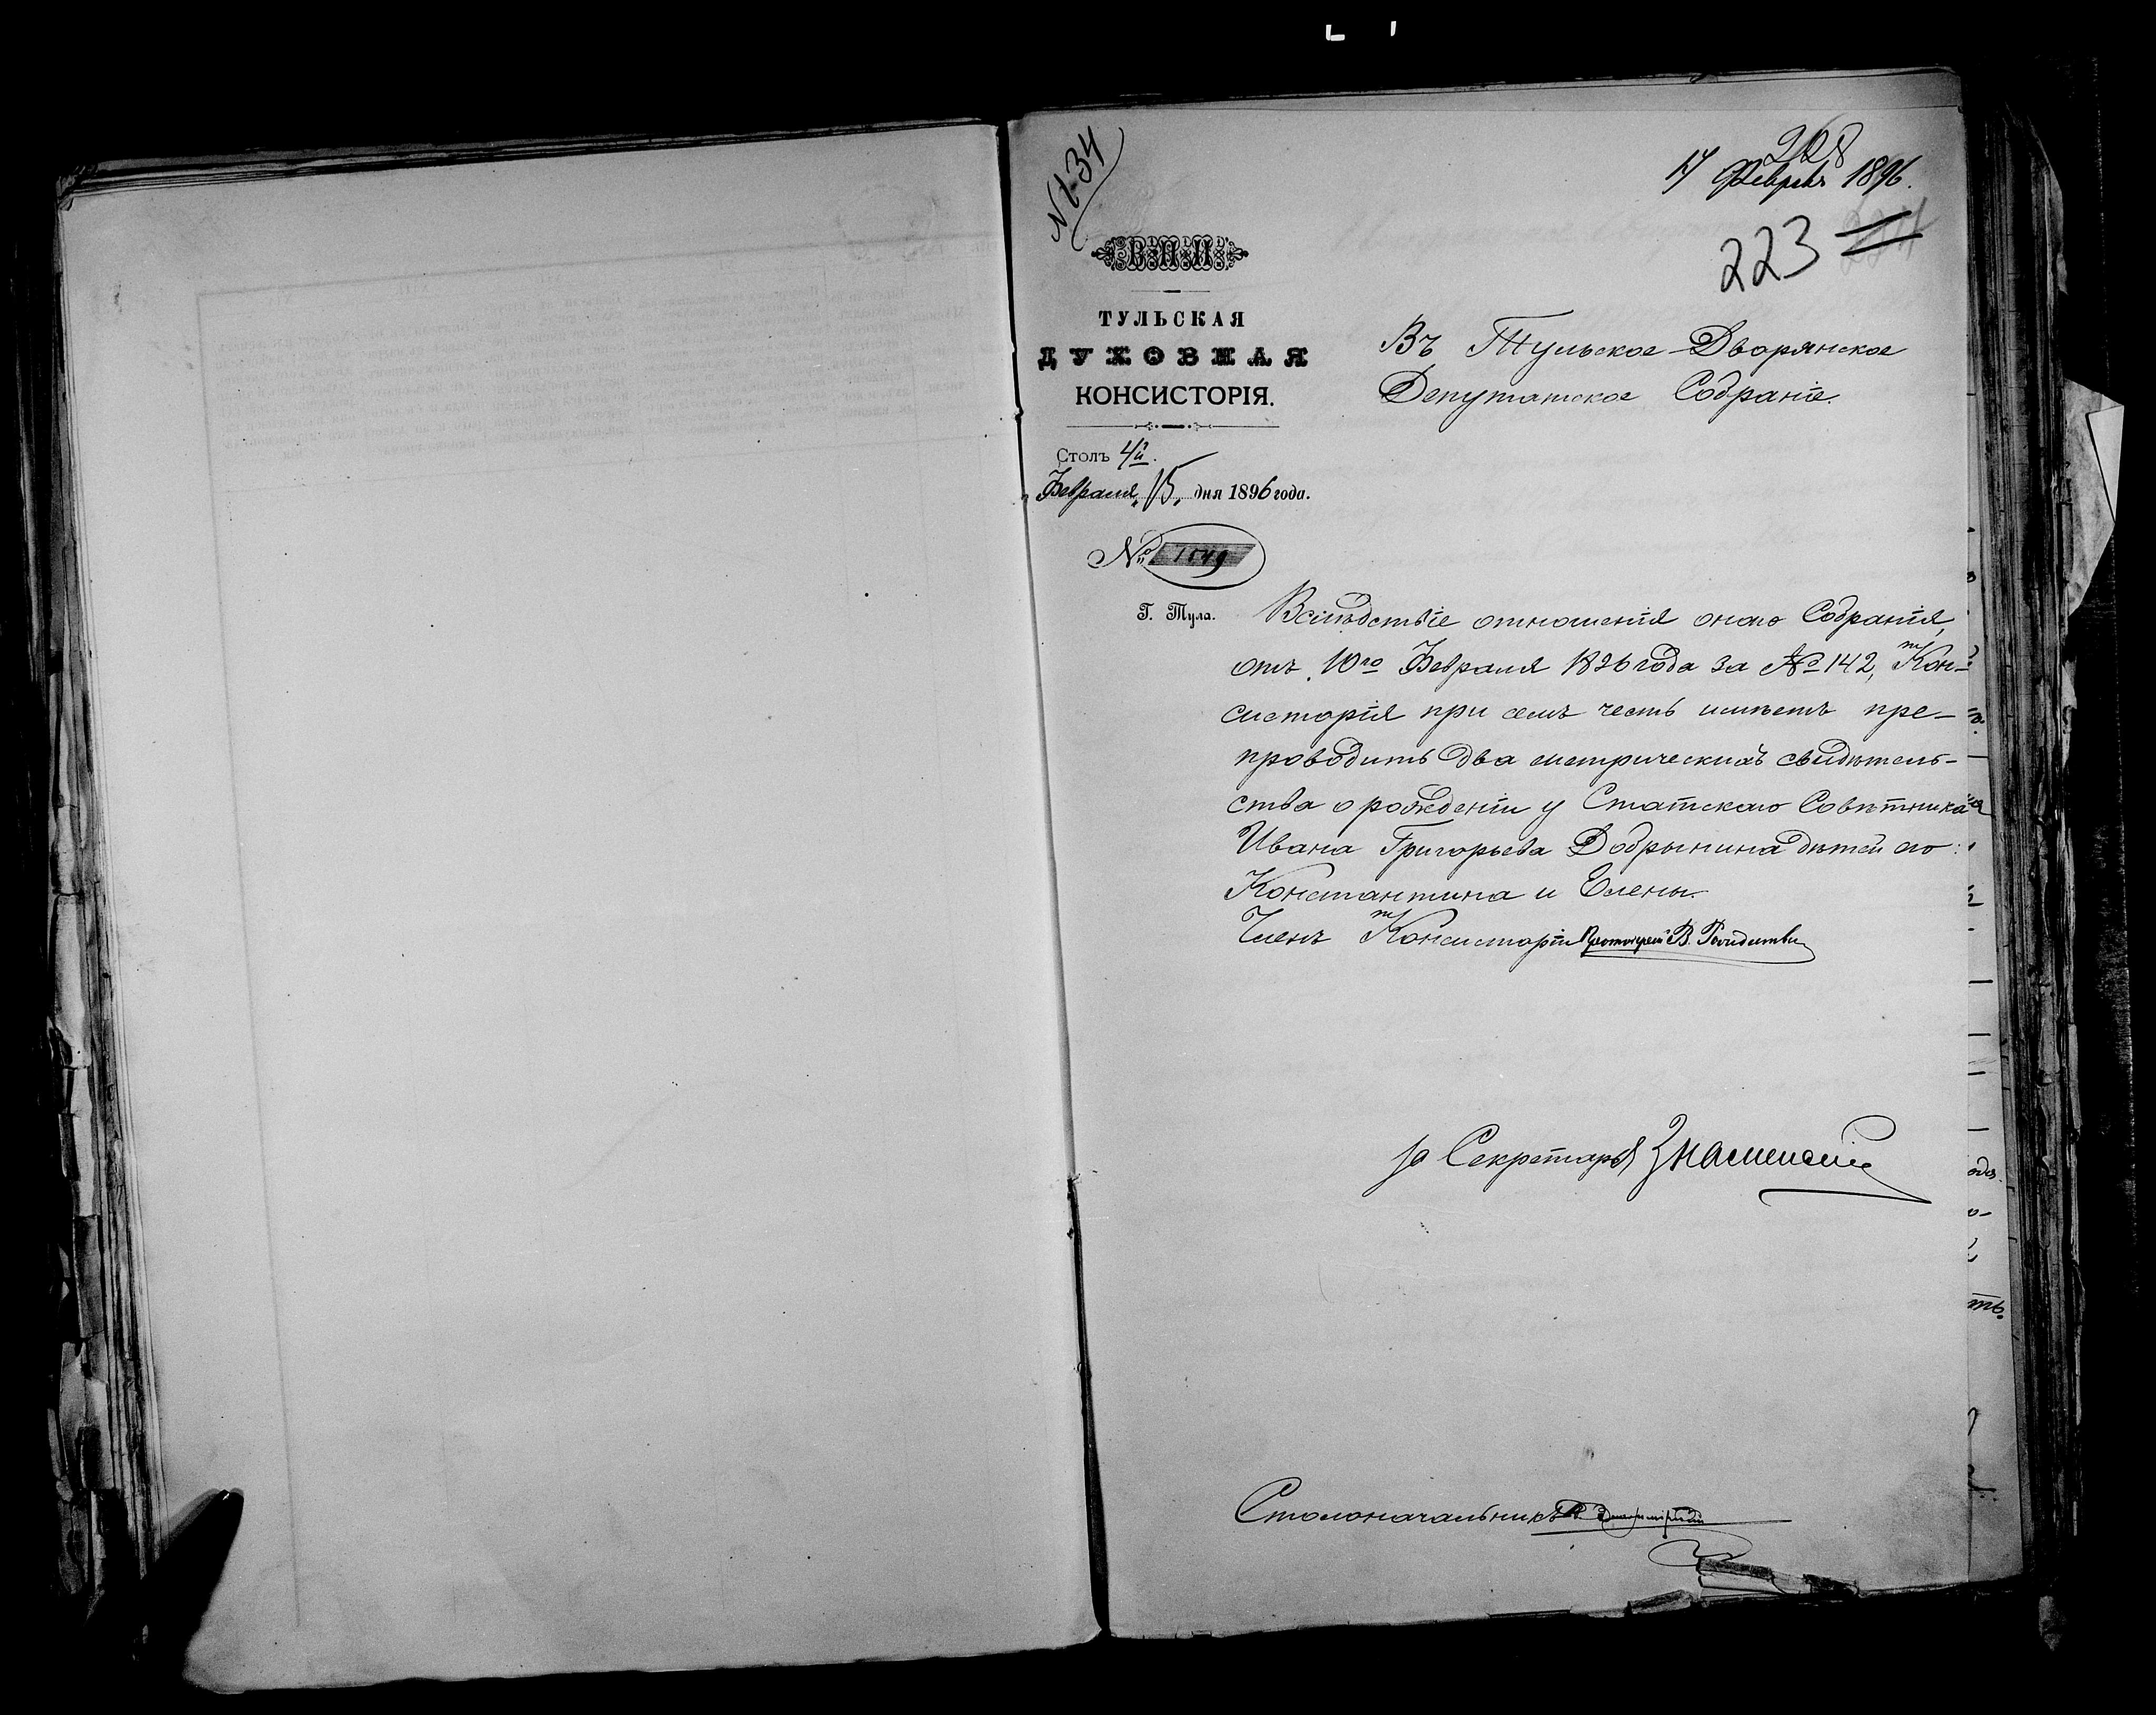 № 134
208
17 Февраля 1896.
223
В. П. И.
ТУЛЬСКАЯ
ДУХОВНАЯ
КОНСИСТОРІЯ.
Въ Тульское Дворянское
Депутатское Собраніе.
Столъ 4й.
Февраля „15„ дня 1896 года.
№ 1549
Г. Тула.
Вслѣдствіе отношенія онаго Собранія,
отъ 10го Февраля 1896 года за № 142, Кон-
систорія при семъ честь имѣетъ пре-
проводить два метрическихъ свидѣтель-
ства о рожденіи у Статскаго Совѣтника
Ивана Григорьева Добрынина дѣтей его:
Константина и Елены.
Членъ Консисторіи Протоіерей В.
за Секретаря Знаменскій
Столоначальникъ